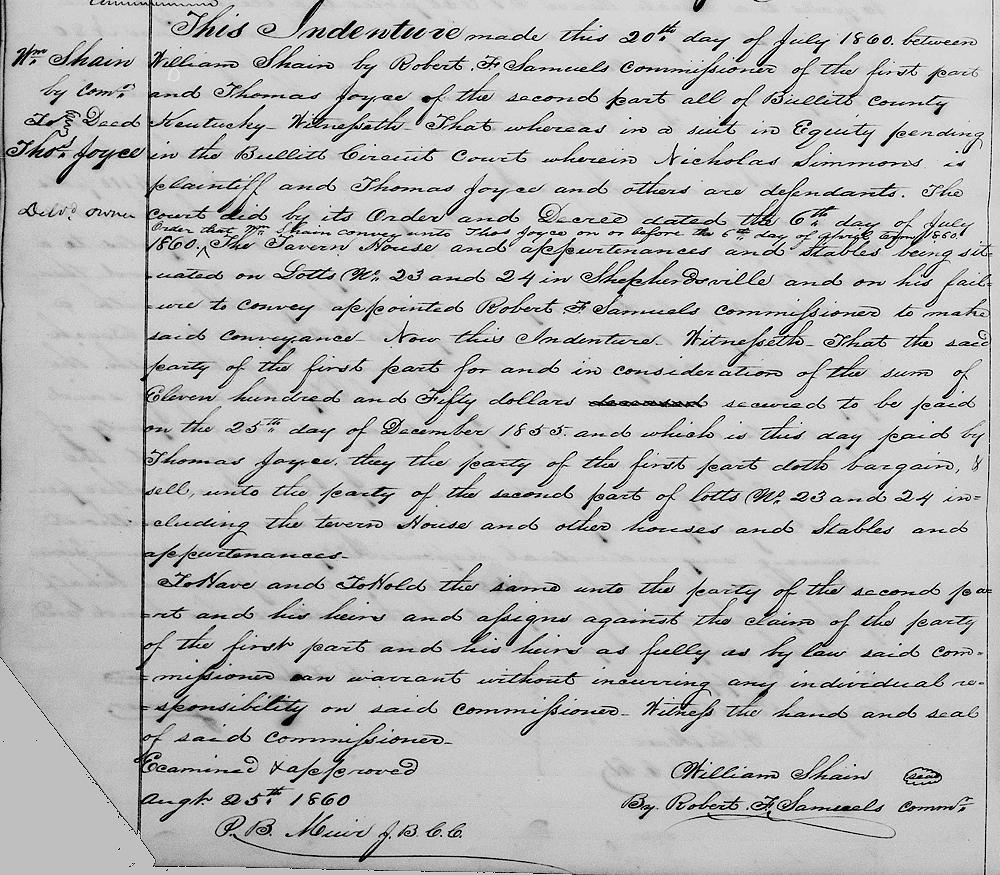 This Indenture made this 20th day of July 1860. between
Wm Shain
William Shain by Robert. F Samuels commissioner of the first part
by comr.
and Thomas Joyce of the second part all of Bullitt county
To Deed
Kentucky- Witnesseth- That whereas in a suit in Equity pending
Thos. Joyce
in the Bullitt Circuit Court wherein Nicholas Simmons is
plaintiff and Thomas Joyce and others are defendants. The
Delvd. owner
court did by its Order and Decree dated the 6th day of July
Order that Wm Shain convey unto Thos Joyce on or before the 6th day of 1860
1860. ^ The Tavern House and appurtenances and Stables being sit-
-uated on Lotts No. 23 and 24 in Shepherdsville and on his fail-
-ure to convey appointed Robert. F Samuels commissioner to make
said conveyance Now this Indenture- Witnesseth- That the said
party of the first part for and in consideration of the sum of
Eleven hundred and Fifty dollars secured to be paid
on the 25th day of December 1855. and which is this day paid by
Thomas Joyce. they the party of the first part doth bargain, &
sell, unto the party of the second part of lotts No. 23 and 24 in=
-cluding the tavern House and other houses and Stables and
appurtenances-
To Have and To Hold the same unto the party of the second pa=
-rt and his heirs and assigns against the claim of the party
of the first part and his heirs as fully as by law said com=
-missioner can warrant without incurring any individual re=
-sponsibility on said commissioner- Witness the hand and seal
of said commissioner-
Examined & approved
William Shain seal
Augt. 25th 1860
By. Robert. F. Samuels commr.
P. B. Muir J. B. C. C.